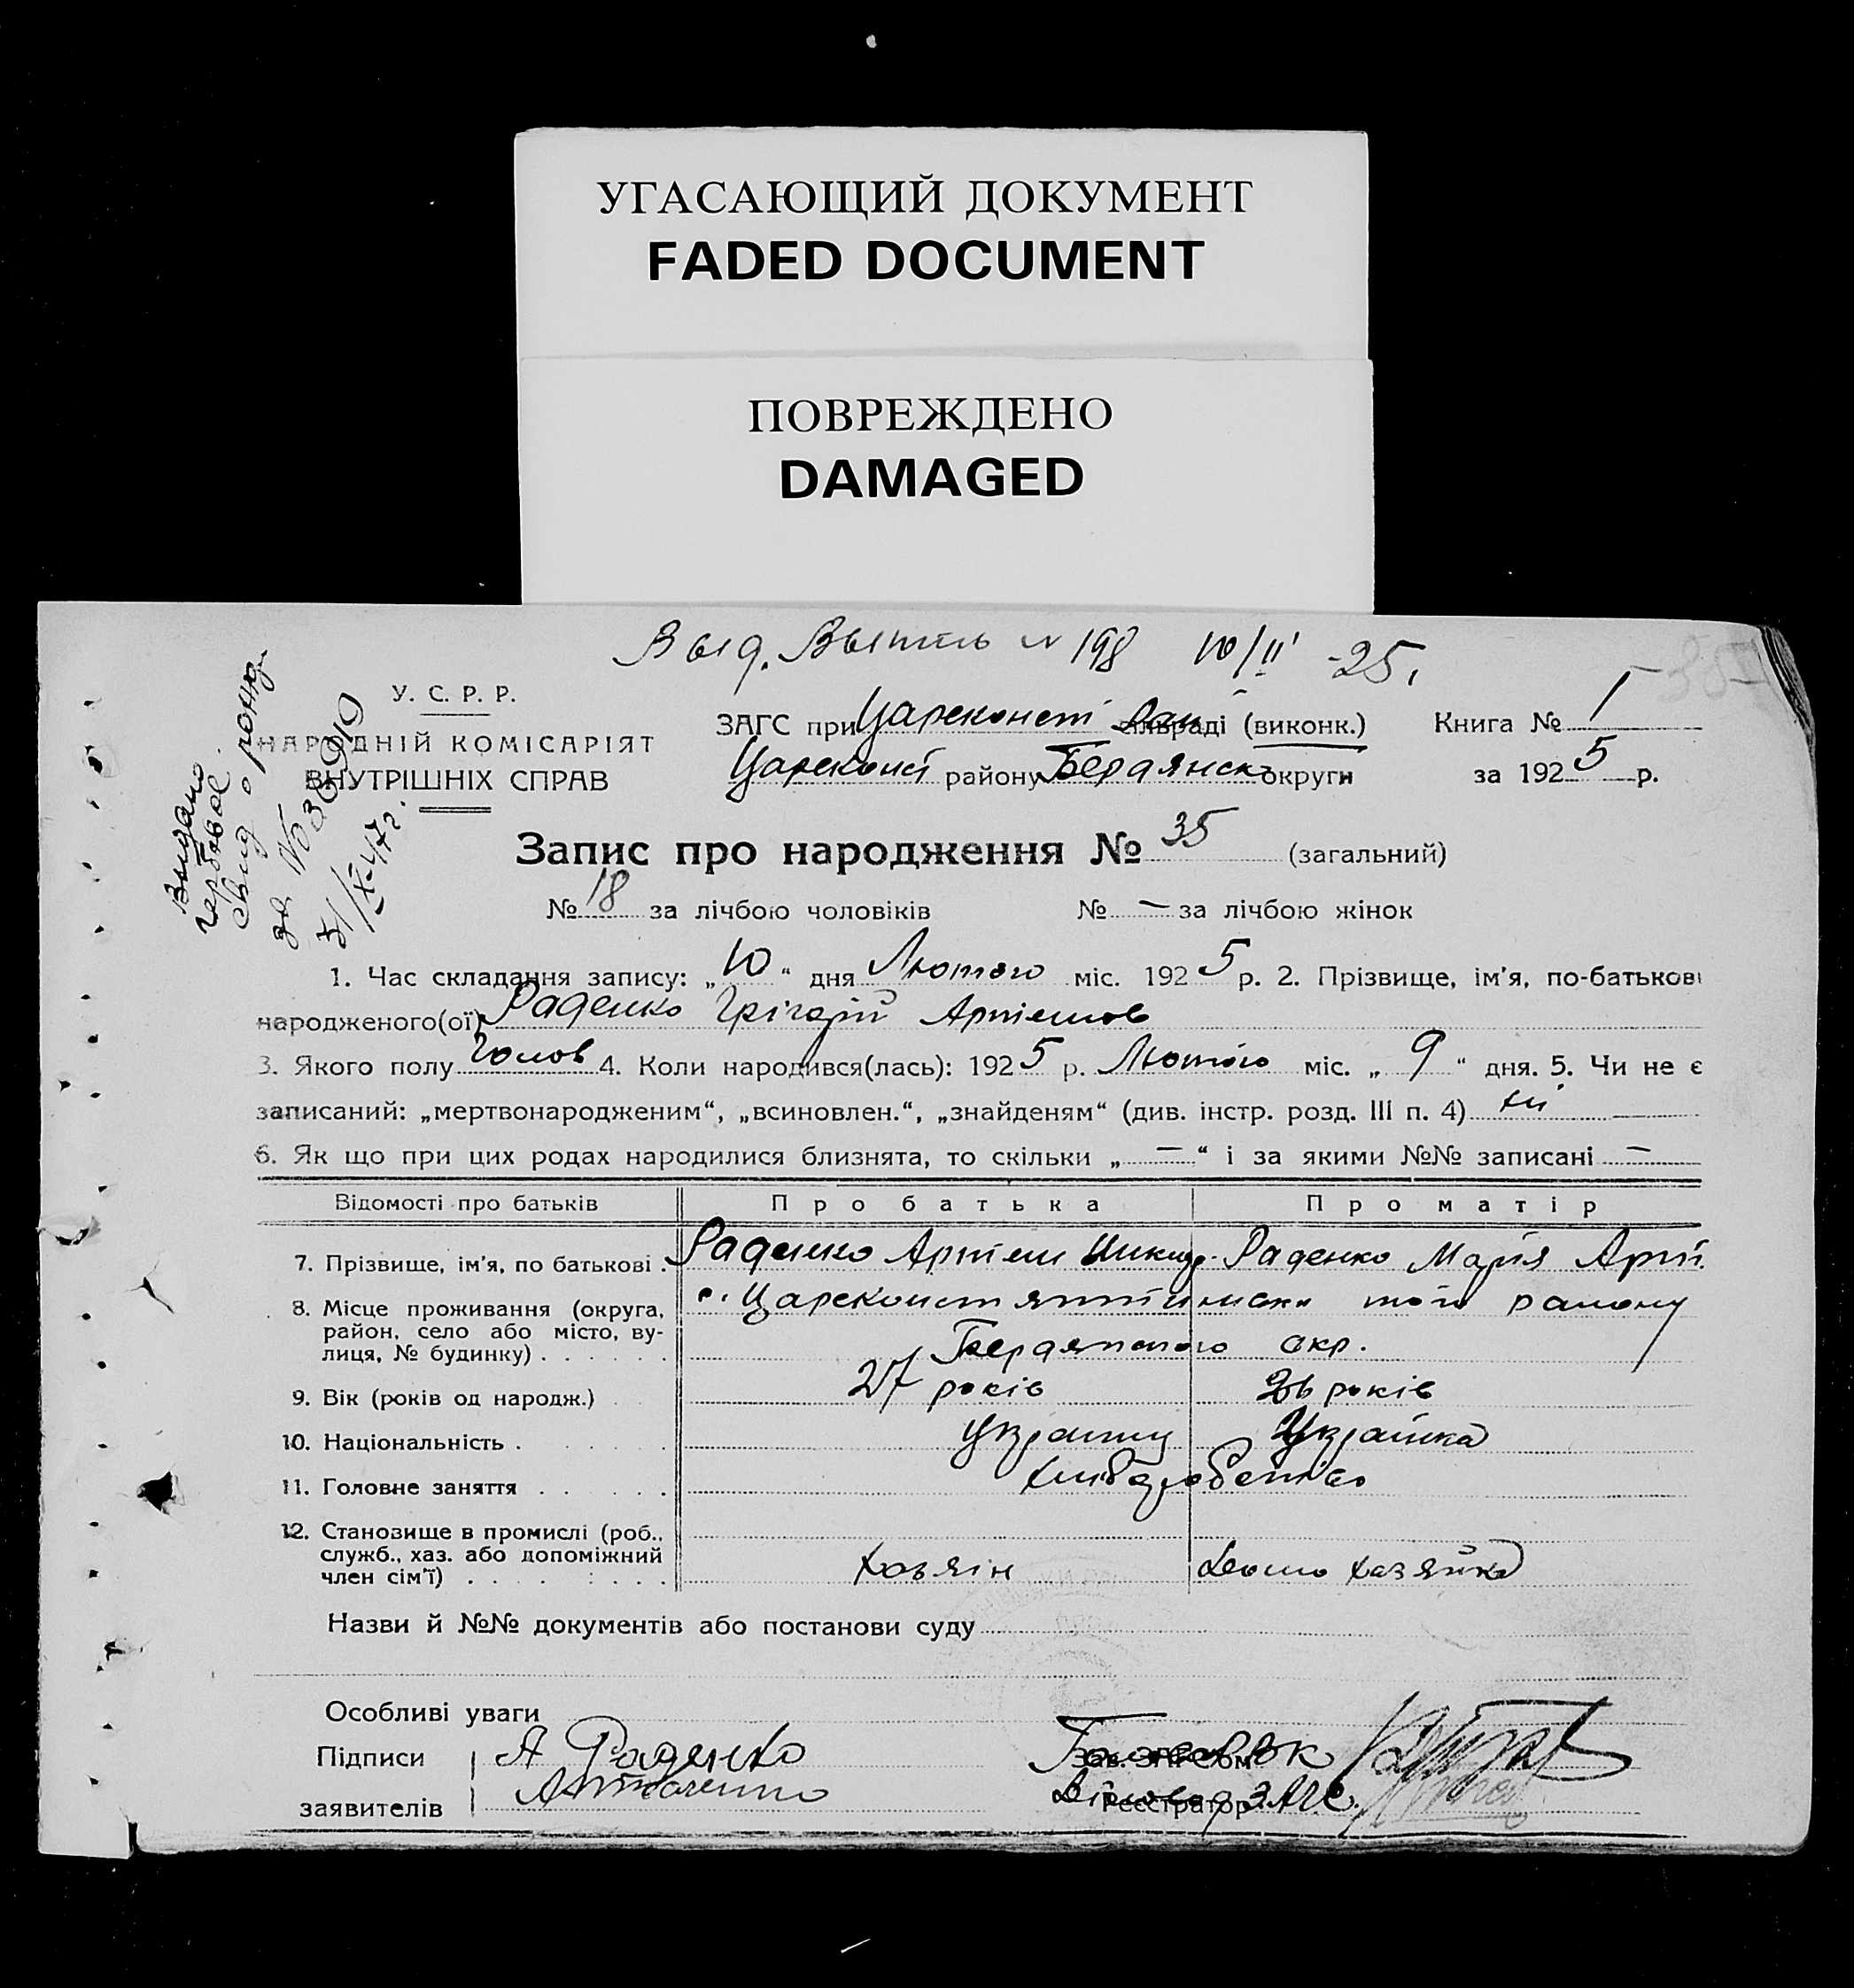 УГАСАЮЩИЙ ДОКУМЕНТ
FADED DOCUMENT
ПОВРЕЖДЕНО
DAMAGED
Выд. Выпись № 198 10/II -25.
Видано гербовое свид о рожд
за №
31/X-47г.
У. С. Р. Р.
НАРОДНІЙ КОМІСАРІЯТ
ВНУТРІШНІХ СПРАВ
ЗАГС при Цареконст Рай сільраді (виконк.) Книга № 1
Цареконст району Бердянск округи за 1925 р.
Запис про народження № 35 (загальний)
№ 18 за лічбою чоловіків № — за лічбою жінок
1. Час складання запису: „10“ дня Лютого міс. 1925 р. 2. Прізвище, ім'я, по-батькові
народженого(ої) Раденко Грігорій Артемов
3. Якого полу Чолов 4. Коли народився(лась): 1925 р. Лютого міс. „9“ дня. 5. Чи не є
записаний: „мертвонародженим“, „всиновлен.“, „знайденям“ (див. інстр. розд. III п. 4) ні
6. Як що при цих родах народилися близнята, то скільки „—“ і за якими №№ записані —
Відомості про батьків Про батька Про матір
7. Прізвище, ім'я, по батькові . Раденко Артем Раденко Марія Арт.
8. Місце проживання (округа, с. того району
район, село або місто, ву-
лиця, № будинку) . . . . . . Бердянского окр.
9. Вік (років од народж.) 27 років 26 років
10. Національність . Українц Українка
11. Головне заняття . . . . . хліборобство
12. Становище в промислі (роб.,
служб., хаз. або допоміжний
член сім'ї) . . . . : . . . . Хозяін Домо хазяйка
Назви й №№ документів або постанови суду
Особливі уваги
Підписи А Раденко Зав. ЗАГС'ом Голова РВК
заявителів Реєстратор Діловод ЗАГС.